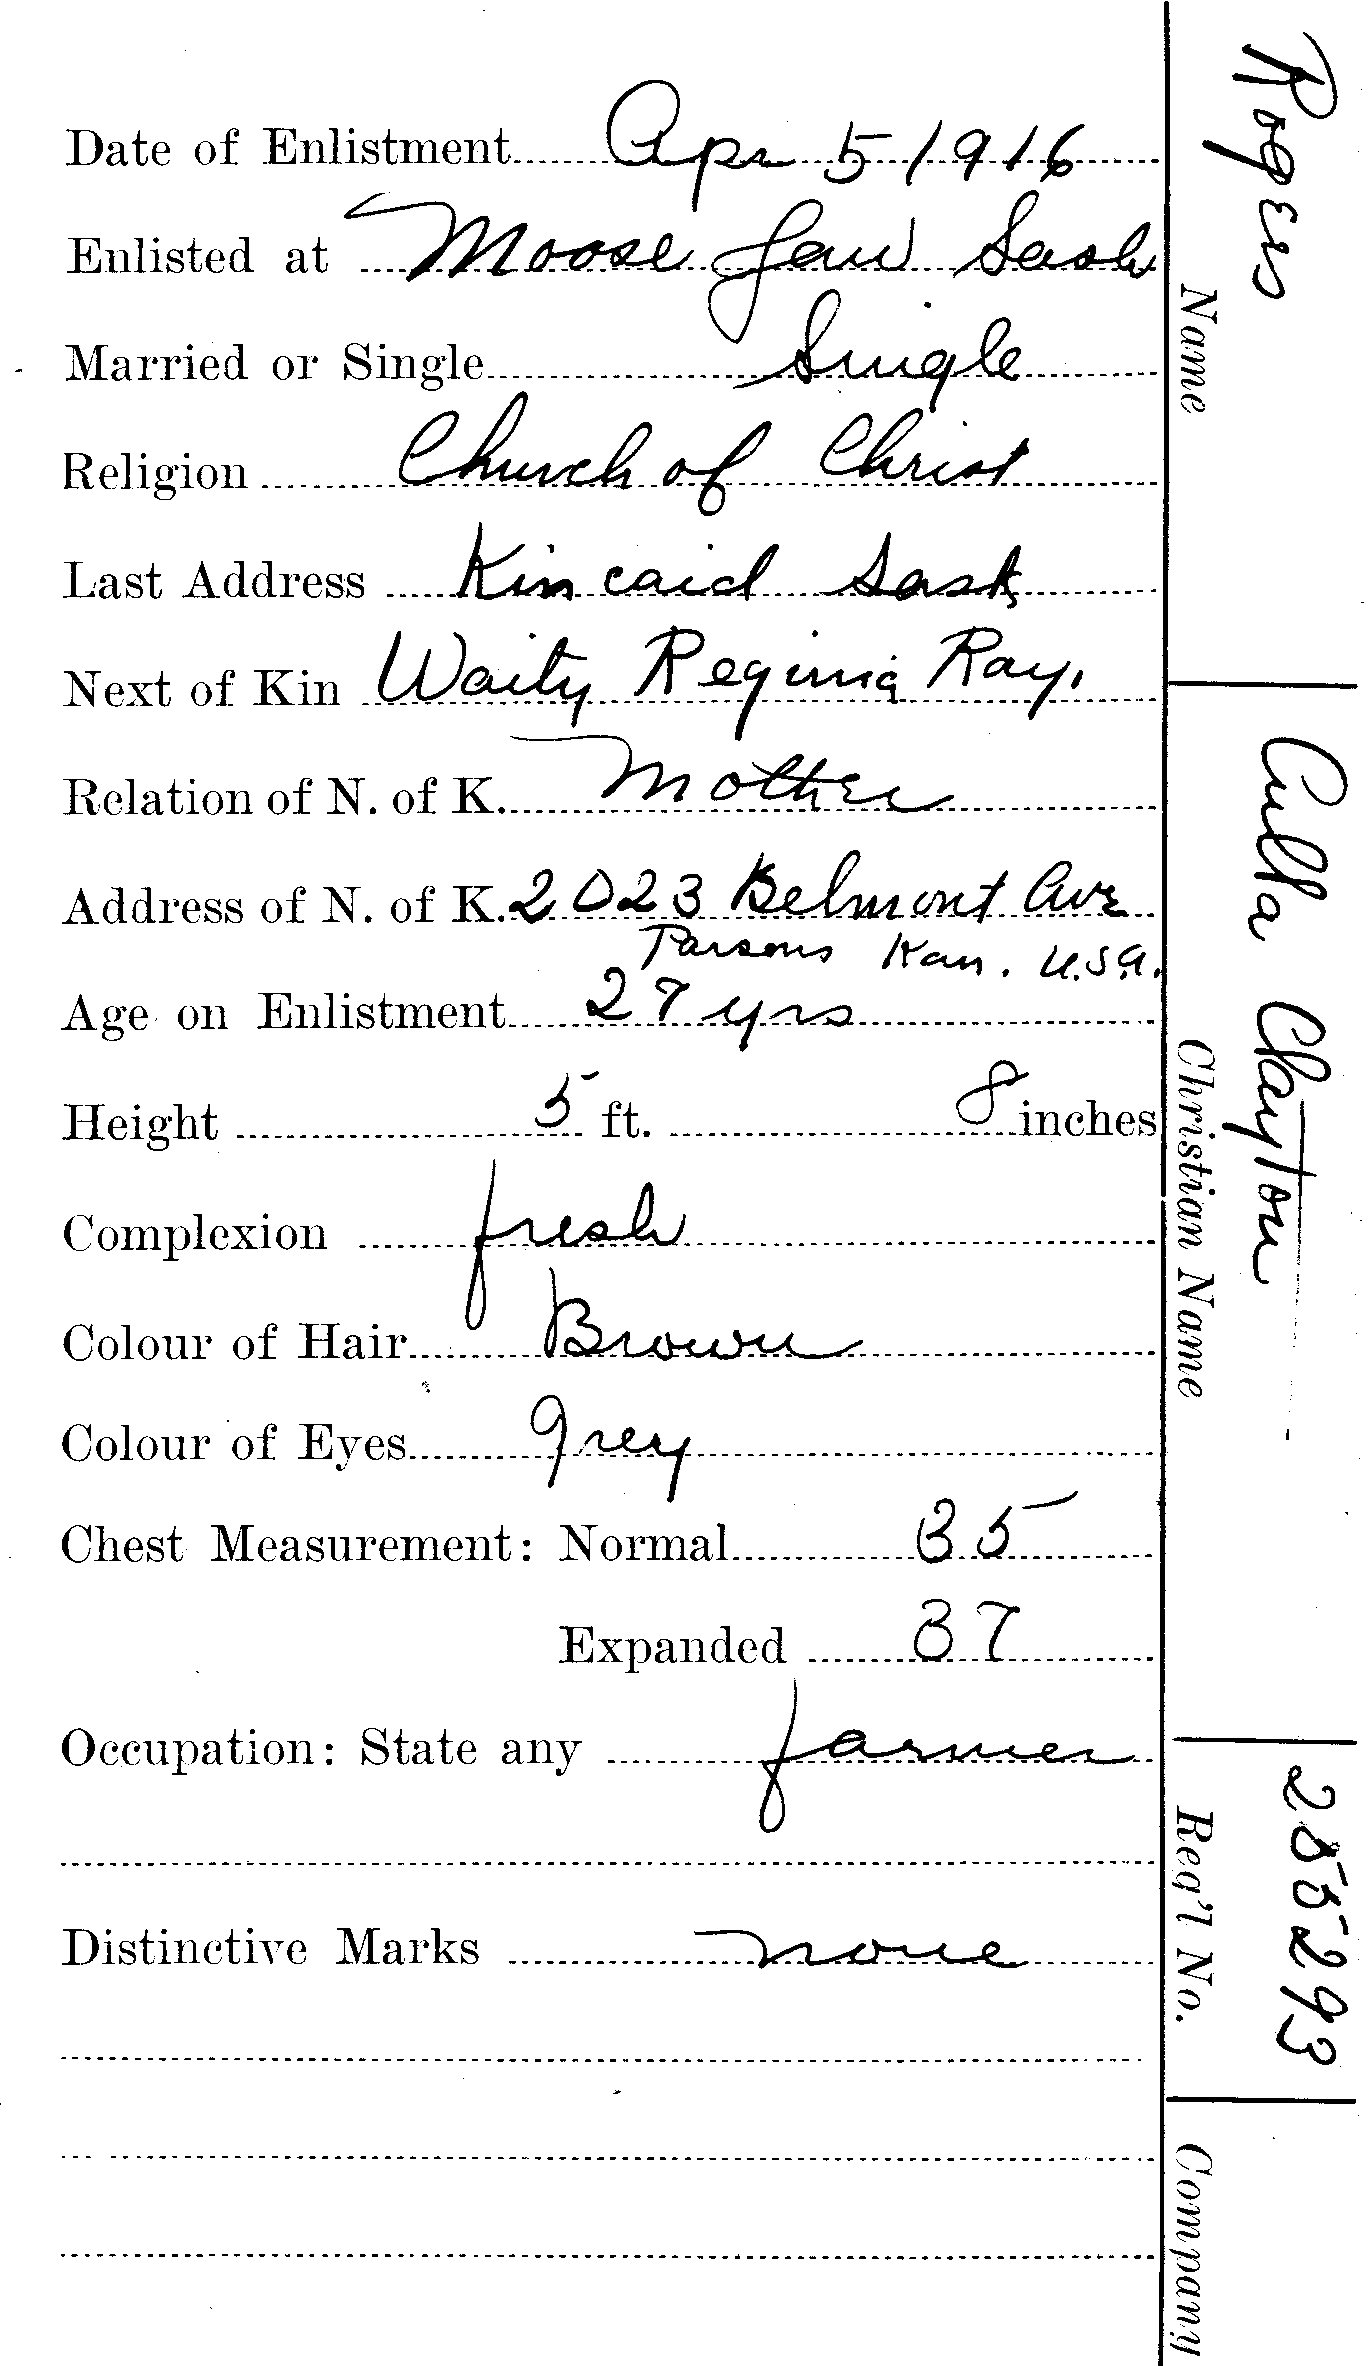 Date of Enlistment Apr 5 1916
Enlisted at Moose Jaw Sask
Married or Single Single
Religion Church of Christ
Last Address Kincaid Sask
Next of Kin Waity Reginia Ray.
Relation of N. of K. Mother
Address of N. of K. 2023 Belmont Ave
Parsons Kan. U.S.A.
Age on Enlistment 27 yrs
Height 5 ft. 8 inches
Complexion fresh
Colour of Hair Brown
Colour of Eyes grey
Chest Measurement: Normal 35
Expanded 37
Occupation: State any farmer
Distinctive Marks none
Rogers
Name
Culla Clayton
Christian Name
255293
Reg'l No.
Company